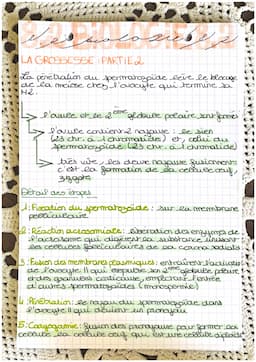 BIOLOGIE
LA GROSSESSE : PARTIE 2
La pénétration du spermatozoïde lève le blocage
de la meïose chez l'ovocyte qui termine sa
M2.
l'ovule et le 2ème globule polaire sont formés
l'ovule contient 2 noyaux : le sien
(23 chr. à 1 chromatide) et celui du
spermatozoïde (23 chr. à 1 chromatide)
très vite les deux noyaux fusionnent
c'est la formation de la cellule œuf,
zygote
Détail des étapes
1. Fixation du spermatozoïde : sur la membrane
pellucidaire
2. Réaction acrosomiale : libération des enzymes de
l'acrosome qui digèrent la substance unissant
les cellules folliculaires de la corona radiata
3. Fusion des membranes plasmiques : entraîne l'activation
de l'ovocyte II qui expulse son 2ème globule polaire
et des granules corticaux, empêchant l'entrée
d'autres spermatozoïdes (monospermie)
4. Pénétration : le noyau du spermatozoïde dans
l'ovocyte II qui devient un pronoyau
5. Caryogamie : fusion des pronoyaux pour former la
cellule œuf qui est une cellule diploïde